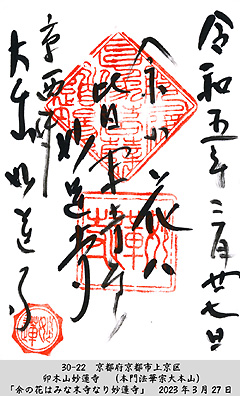 令和五年三月廿七日
余の花ハ
皆末寺なり
妙蓮寺
京西陣
大本山妙蓮寺
30-22 京都府京都市上京区
卯木山妙蓮寺 (本門法華宗大本山)
「余の花はみな末寺なり妙蓮寺」 2023年3月27日